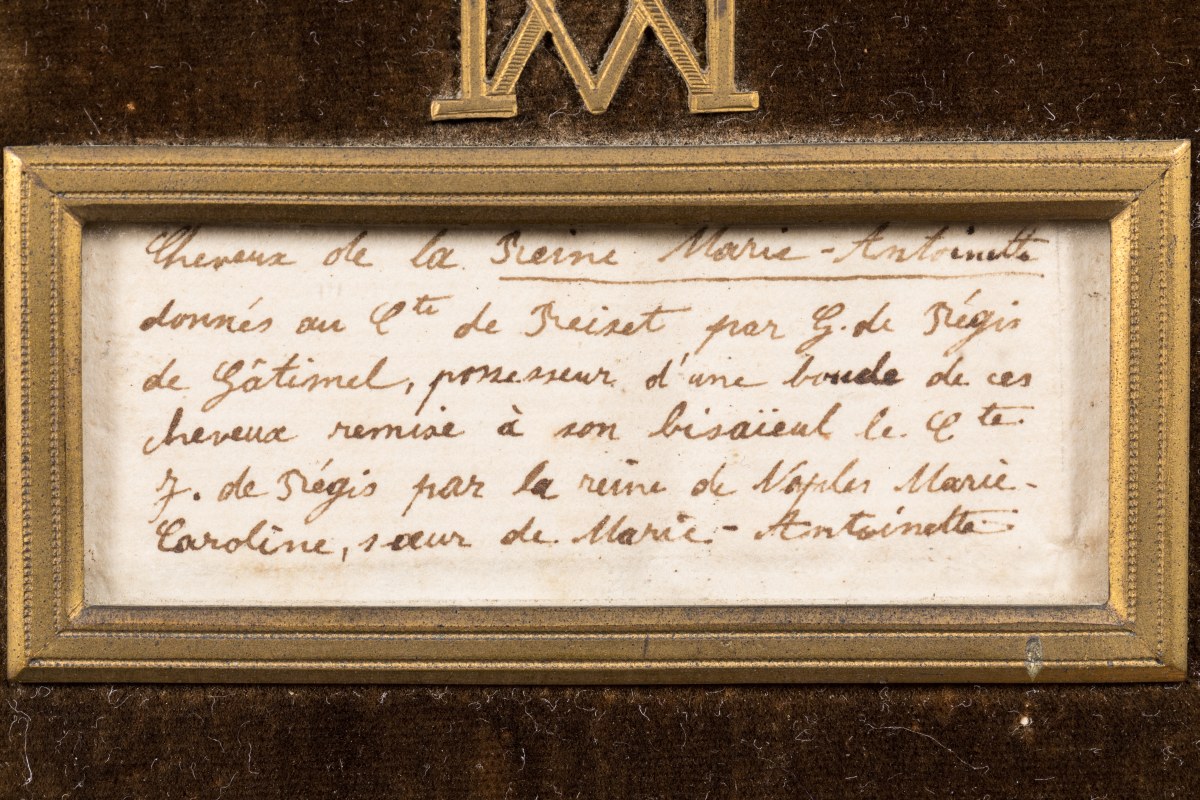 M
Cheveux de la Reine Marie-Antoinette
donnés au Cte de Reiset par G. de Régis
de Gâtimel, possesseur d'une boucle de ces
cheveux remise à son bisaïeul le Cte
J. de Régis par la reine de Naples Marie-
Caroline, sœur de Marie-Antoinette